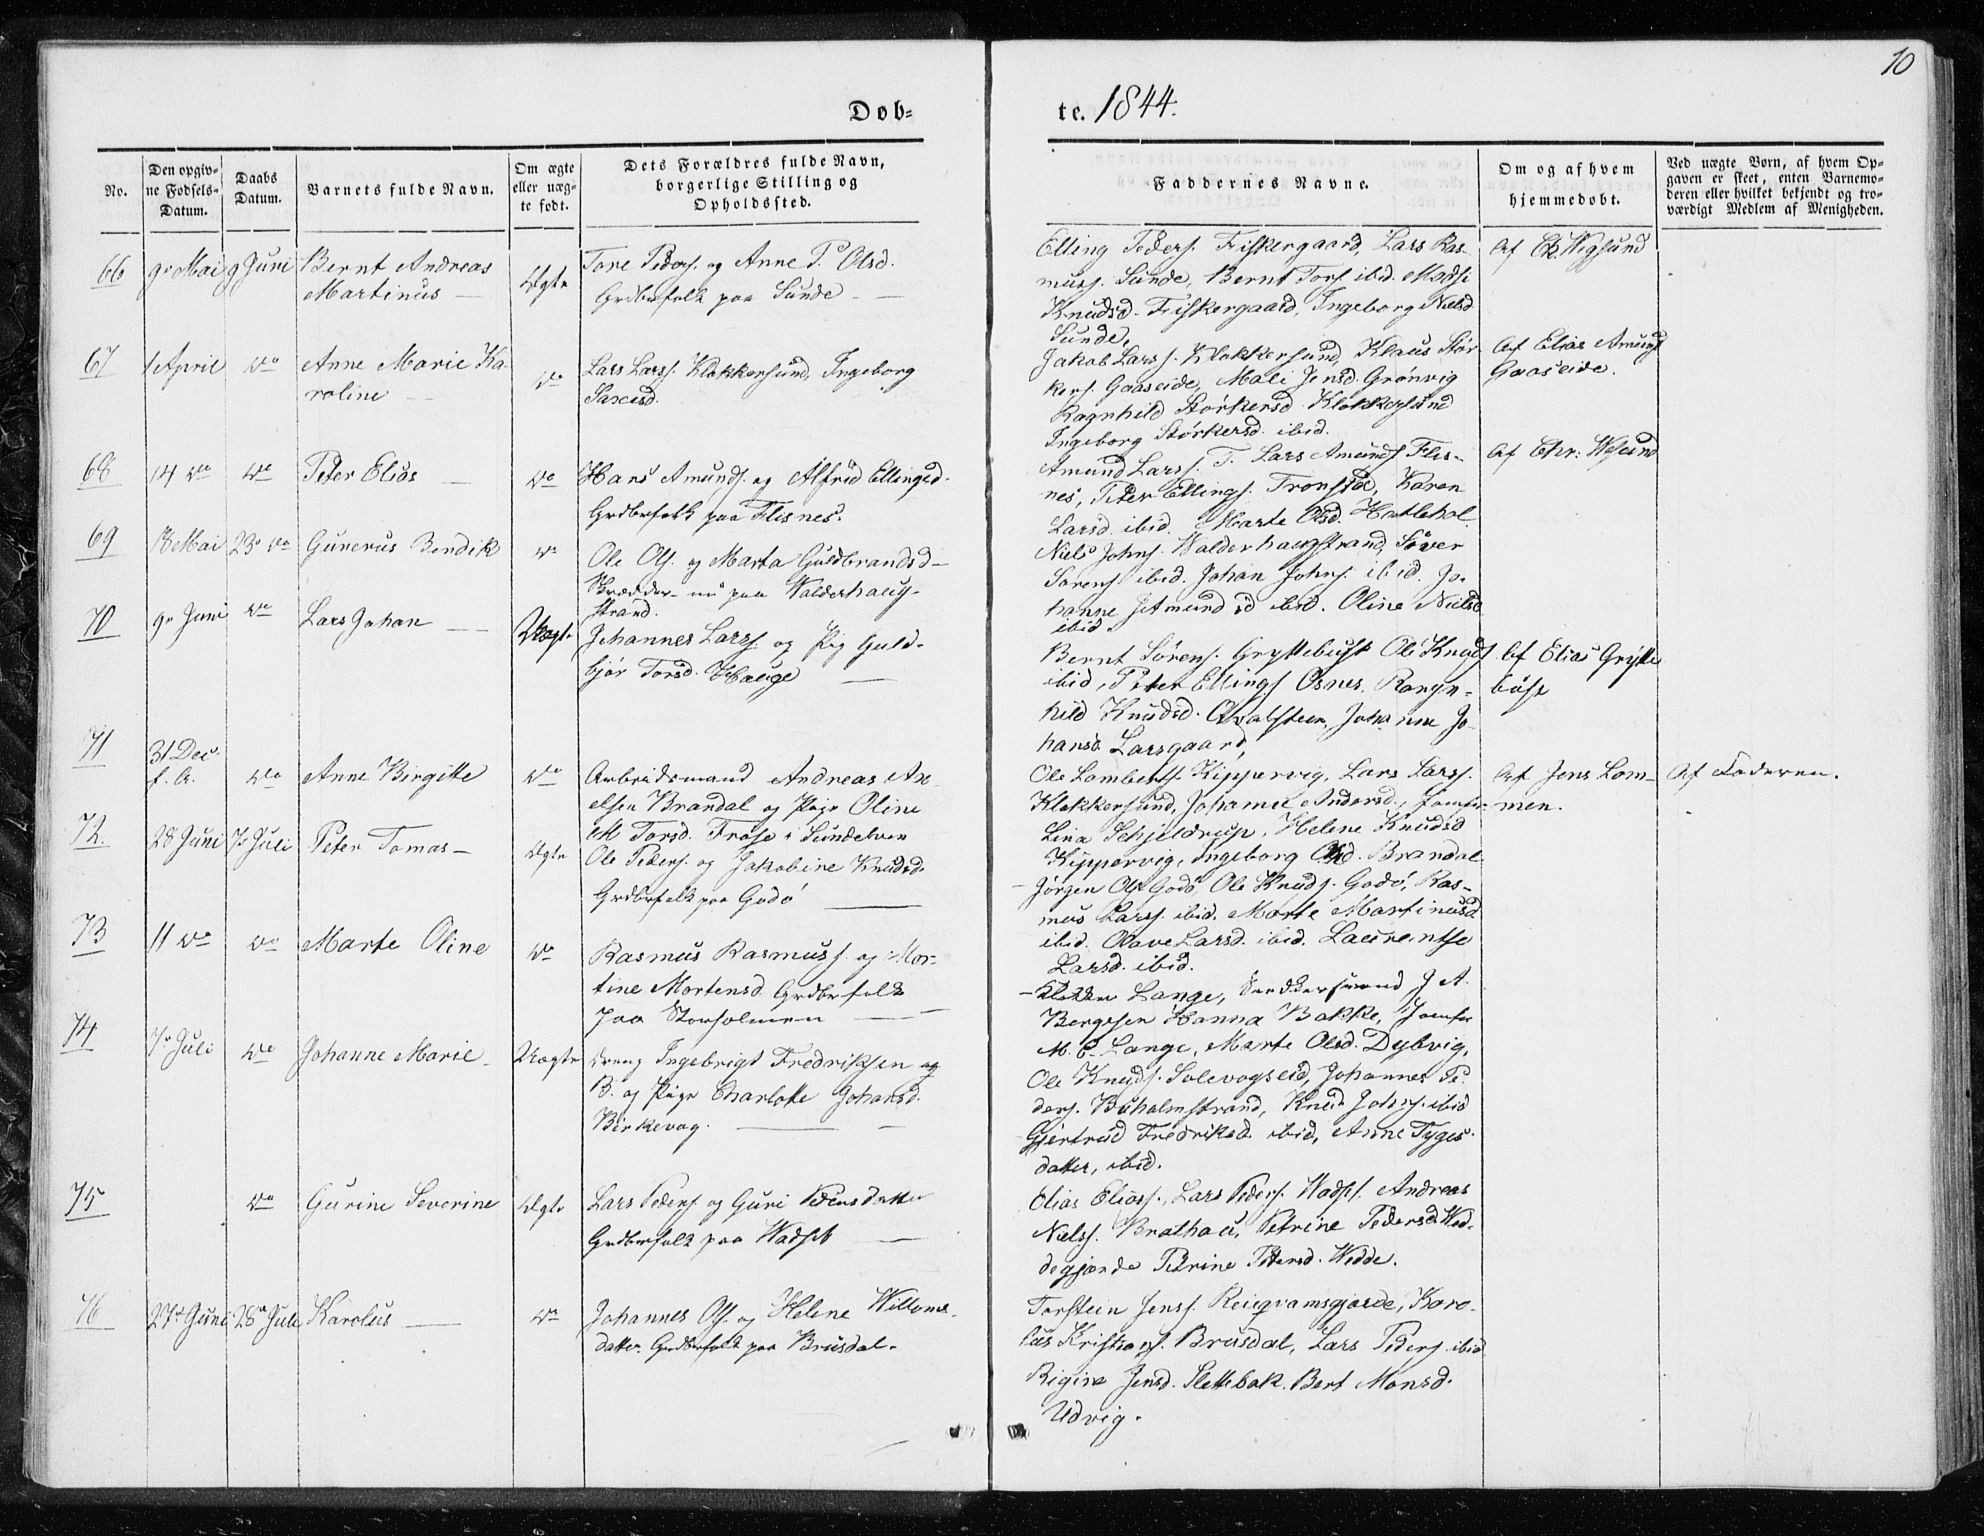 10
Døb-
te. 1844.
No.
Den opgiv-
ne Fødsels-
Datum.
Daabs
Datum.
Barnets fulde Navn.
Om ægte
eller uæg-
te født.
Dets Forældres fulde Navn,
borgerlige Stilling og
Opholdssted.
Faddernes Navne.
Om og af hvem
hjemmedøbt.
Ved uægte Børn, af hvem Op-
gaven er skeet, enten Barnemo-
deren eller hvilket bekjendt og tro-
værdigt Medlem af Menigheden.
66
9. Mai
9 Juni
Bernt Andreas
Martinus
Ægte
Tore Peders. og Anne P. Olsd.
Grdbrfolk paa Sunde
Elling Peders. Fiskergaard, Lars Ras-
muss. Sunde, Bernt Tors. ibid.
Knudsd. Fiskergaard, Ingeborg Nielsd
Sunde,
Af
67
1 April
do
Anne Marie Ka-
roline
do
Lars Larss. Klokkersund, Ingeborg
Jakob Larss. Klokkersund, Klaus Stør-
kers. Gaaseide, Mali Jensd. Grønvig
Ragnhild Størkersd. Klokkersund
Ingeborg Størkersd. ibid.
Af Elias Amunds
Gaaseide.
68
14 do
do
Peter Elias
do
Hans Amunds. og Alfrid Ellingsd.
Grdbrfolk paa Flisnes.
Amund Larss. T. Lars Amunds Flis-
nes, Peter Ellings. Tronstad, Karen
Larsd. ibid. Marte Olsd. Hatlehol
Af Chr:
69
18 Mai
23. do
Gunerus Bendik
do
Ole Ols. og Marta Guldbrandsd
Skrædder nu paa Walderhaug-
strand.
Niels Johns. Walderhaugstrand, Siver
Sørens. ibid. Johan Johns. ibid. Jo-
hanne Jetmundsd ibid. Oline Nielsd
ibid.
70
9. Juni
do
Lars Johan
Uægte
Johannes Larss. og Pig Guld-
bjør Torsd. Hauge
Bernt Sørens. Gryttebust Ole Knuds
ibid, Peter Ellings Osnes, Rangn-
hild Knudsd. Qvalsteen, Johanne Jo-
hansd. Larsgaard,
Af Elias Grytte
bust
71
31 Dec.
f. A.
do
Anne Birgitte
do
Arbeidsmand Andreas An-
elsen Brandal og Pige Oline
M Torsd. Frøse i Sundelven
Ole Lamberts. Kippervig, Lars Larss.
Klokkersund, Johanne Andersd., Jomfr
Lina Schjeldrup, Helene Knudsd
Kippervig, Ingeborg Olsd. Brandal
Af Jens Lom-
men.
Af Faderen.
72.
28 Juni
7. Juli
Peter Tomas
Ægte
Ole Peders. og Jakobine Knudsd.
Grdbrfolk paa Godø
Jørgen Ols Godø, Ole Knuds. Godø, Ras-
mus Larss. ibid. Marte Martinusd
ibid. Olave Larsd. ibid. Laurentse
Larsd. ibid.
73
11 do
do
Marte Oline
do
Rasmus Rasmuss. og Mar-
tine Mortensd Grdbrfolk
paa Storholmen
Klokker Lange, J A.
Bergesen Hanna Bakke, Jomfr
M. C. Lange, Marte Olsd. Dybvig,
74
7. Juli
do
Johanne Marie
Uægte
Dreng Ingebrigt Fredriksen og
B. og Pige Charlotte Johansd.
Birkevag.
Ole Knuds. Solevogseid, Johannes Pe-
ders. Buholmstrand, Knud Johns. ibid
Gjertrud Fredriksd. ibid, Anne Tyges-
datter, ibid.
75
do
Gurine Severine
Ægte
Lars Peders og Guri Petersdatter
Grdbrfolk paa Wadset
Elias Eliass., Lars Peders. Wadset, Andreas
Nielss. Brathau, Petrine Pedersd Wed-
degjerde Petrine Petersd. Wedde.
76
27. Juni
28. Juli
Karolus
do
Johannes Ols. og Helene Willoms
datter. Grdbrfolk paa Brusdal.
Torstein Jens. Reigramsgjærde, Karo-
lus Kristians. Brusdal, Lars Peders. ibid
Rigine Jensd. Slettebak. Bert Monsd.
Udvig.